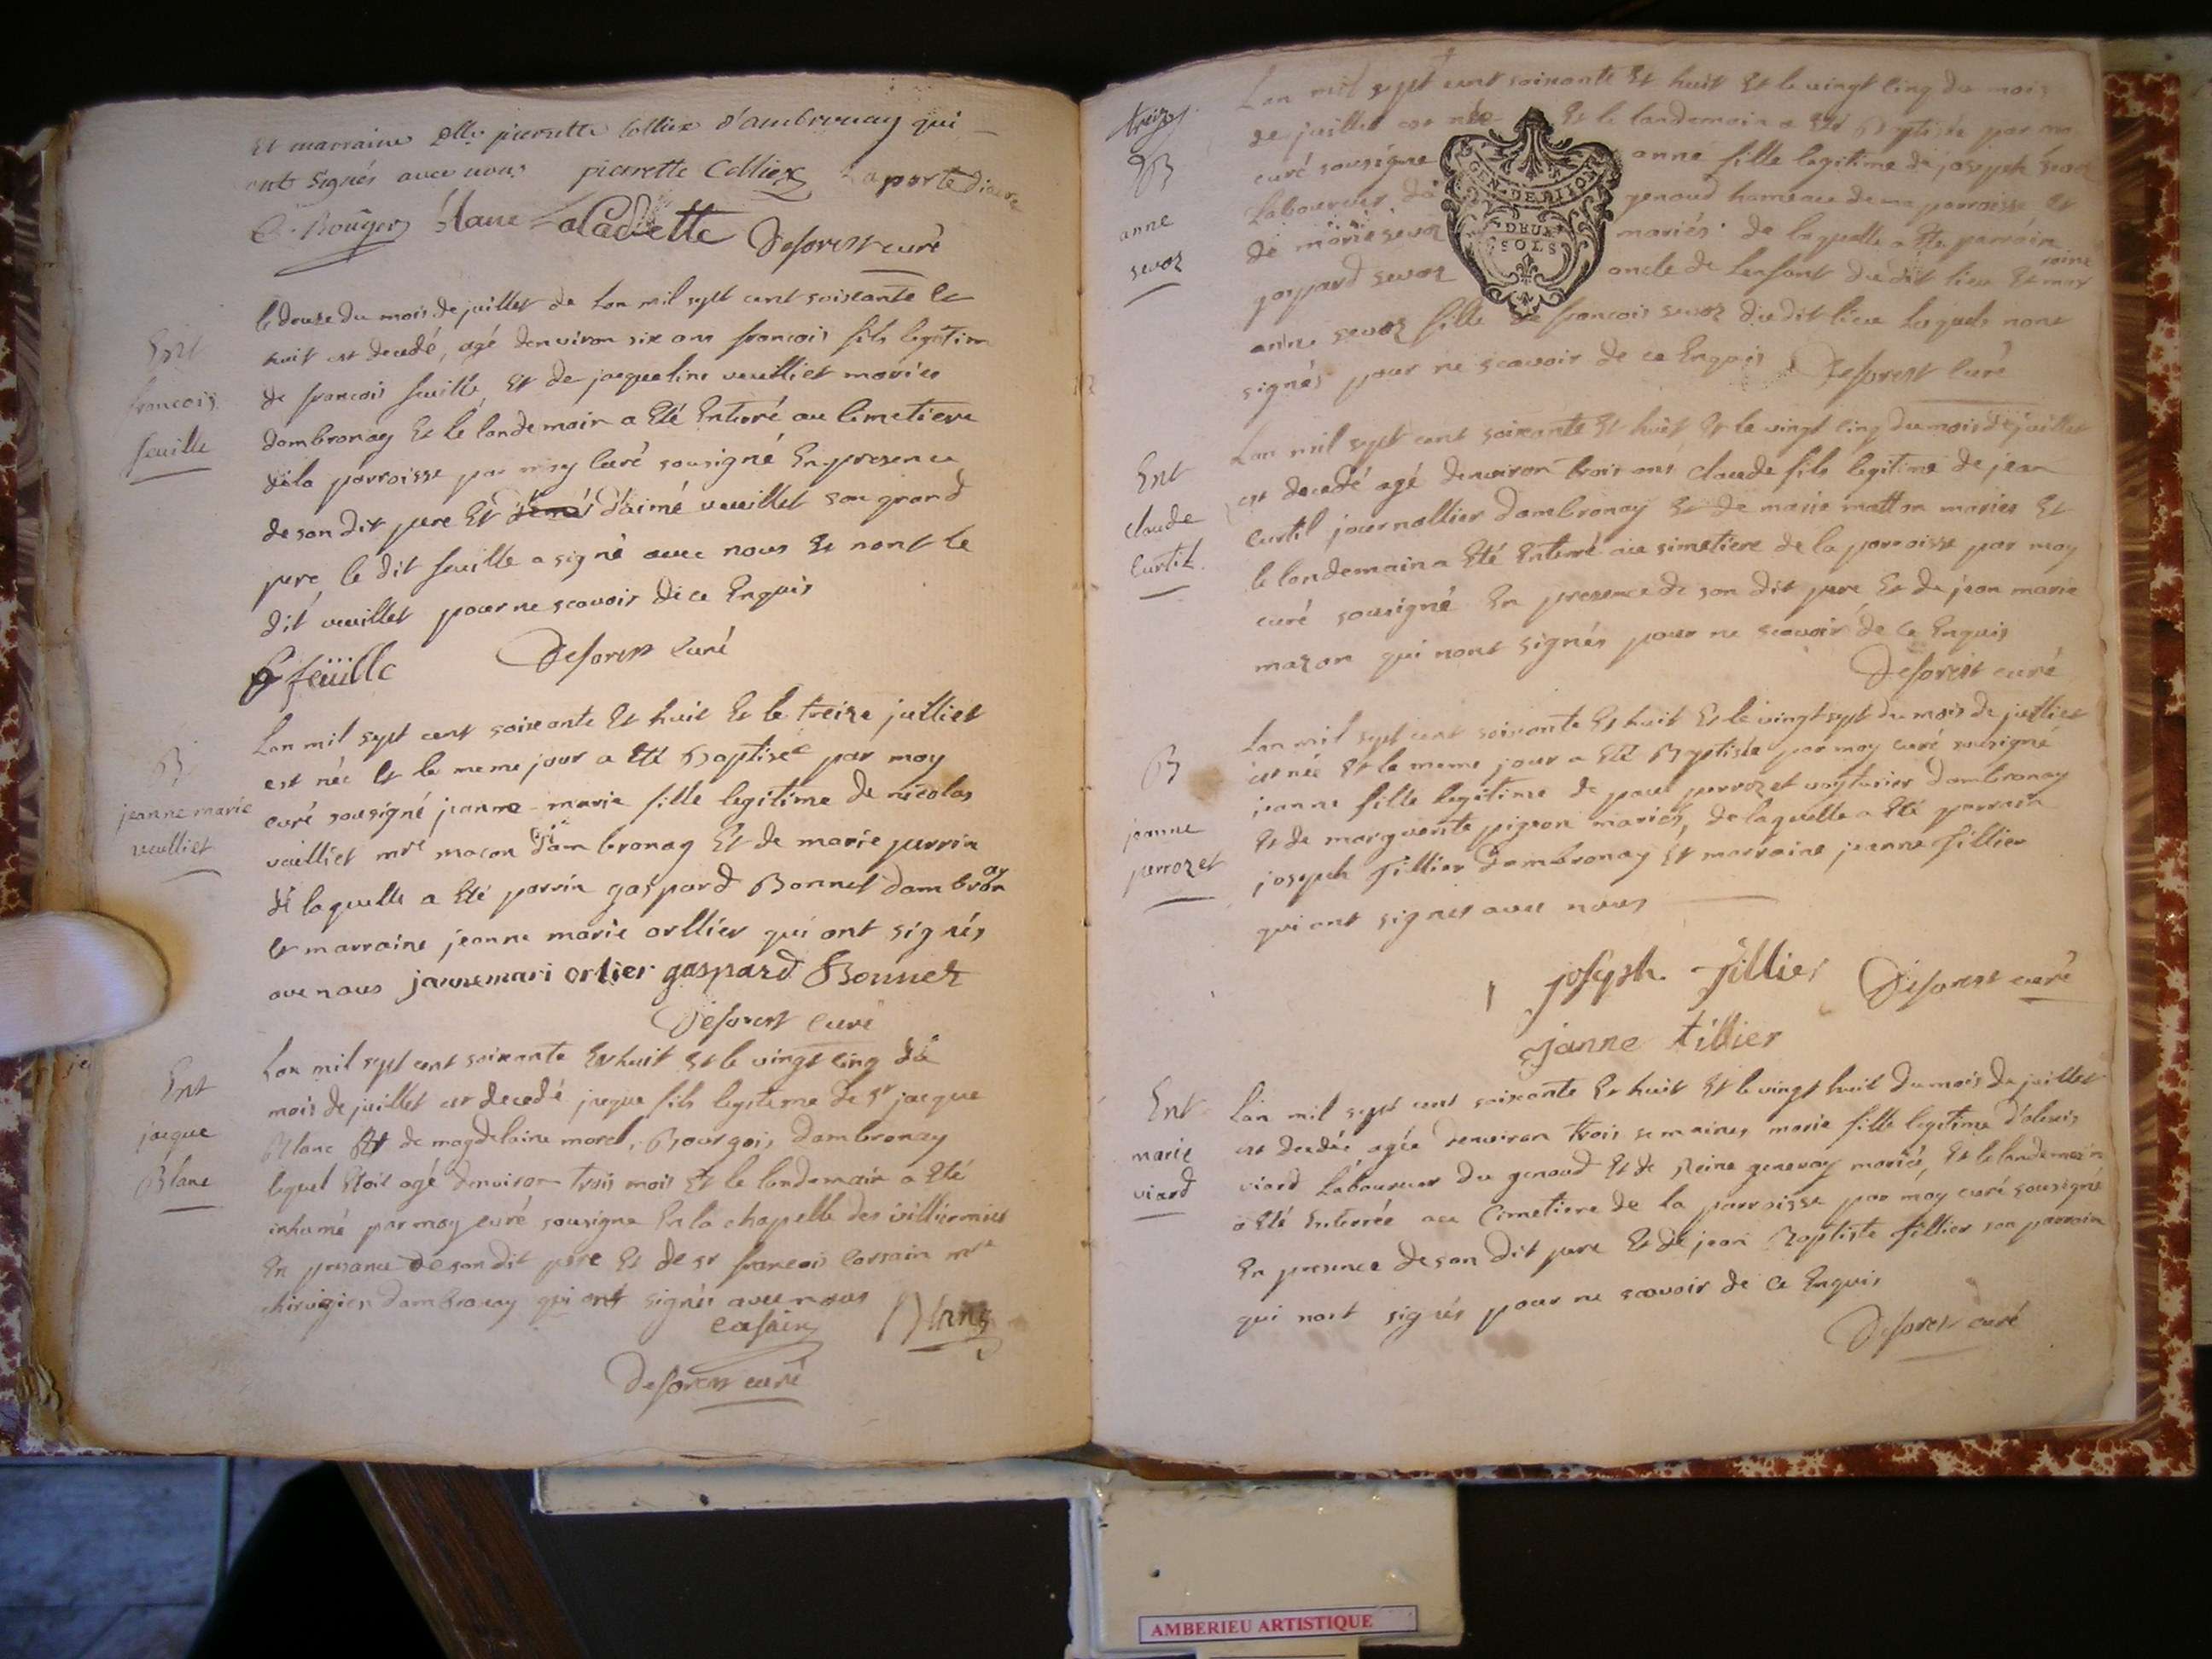 Et marraine Dlle pierrette Collier d'ambronay qui
ont signés avec nous pierrette Collier Laporte diacre
Blanc Deforest curé
Ent
francois
feuille
le douze du mois de juillet de Lan mil sept cent soixante et
huit est decedé, agé denviron six ans francois fils legitim
de francois feuille, Et de jacqueline veuilliet mariés
dambronay Et le landemain a Eté Enterré au Cimetiere
de la parroisse par moy Curé sousigné En presence
de son dit pere Et d'aimé veuillet son grand
pere, le dit feuille a signé avec nous Et non le
dit veuillet pour ne scavoir de ce Enquis
feüille Deforest Curé
B
jeanne marie
veulliet
Lan mil sept cent soixante Et huit Et le treize juilliet
est née Et le meme jour a Eté Baptisée par moy
curé sousigné jeanne marie fille legitime de nicolas
vailliet mre macon d'ambronay Et de marie perrin
de laquelle a Eté parrin gaspard Bonnet dambronay
Et marraine jeanne marie orllier qui ont signés
ave nous jannemari orlier gaspard Bonnet
Deforest Curé
Ent
jacque
Blanc
Lan mil sept cent soixante Et huit Et le vingt Cinq du
mois de juillet est decedé jacque fils legitime de sr jacque
Blanc Et de magdelaine morel, Bourgois dambronay
lequel Etoit agé denviron trois mois Et le landemain a Eté
inhumé par moy curé sousigné En la chapelle des
En presance de son dit pere Et de sr francois Corsain mre
chirugien dambronay qui ont signés avec nous
Blanc
Deforest curé
treize
B
anne
sevoz
Lan mil sept cent soixante Et huit Et le vingt Cinq du mois
de juillet est née Et le landemain a Eté Baptisée par mo
curé sousigné anne fille legitime de joseph sevoz
Laboureur du genoud hameau de ma parroisse Et
de marie sevoz mariés. de laquelle a Ete parrain
gaspard sevoz oncle de Lenfant du dit lieu Et mar
raine
anne sevoz fille de francois sevoz du dit lieu Lesquels nont
signés pour ne scavoir de ce Enquis Deforest Curé
GEN. DE DIJON
DEUX
SOLS
Ent
claude
Curtil
Lan mil sept cent soixante Et huit Et le vingt Cinq du mois de juillet
est decedé agé denviron trois ans claude fils legitime de jean
Curtil journallier dambronay Et de marie matton mariés Et
le landemain a Eté Enterré au simetiere de la parroisse par moy
curé sousigné En presence de son dit pere Et de jean marie
mazon qui nont signés pour ne scavoir de Ce Enquis
Deforest curé
B
jeanne
perrozet
Lan mil sept cent soixante Et huit Et le vingt sept du mois de juilliet
est née Et le meme jour a Eté Baptisée par moy curé sousigné
jeanne fille legitime de paul perrozet voyturier dambronay
Et de marguerite pigeon mariés, de laquelle a Eté parrain
joseph Tillier dambronay Et marraine jeanne Tillier
qui ont signes avec nous
joseph Tillier Deforest curé
janne tillier
Ent
marie
viard
Lan mil sept cent soixante Et huit Et le vingt huit du mois de juillet
est decdée agée denviron trois semaines marie fille legitime d'alexis
viard Laboureur du genoud Et de Reine genevay mariés, Et le landemain
a Eté Enterrée au Cimetiere de la parroisse par moy curé sousigné
En presence de son dit pere Et de jean Baptiste tillier son parrain
qui nont signés pour ne scavoir de Ce Enquis
Deforest curé
AMBERIEU ARTISTIQUE